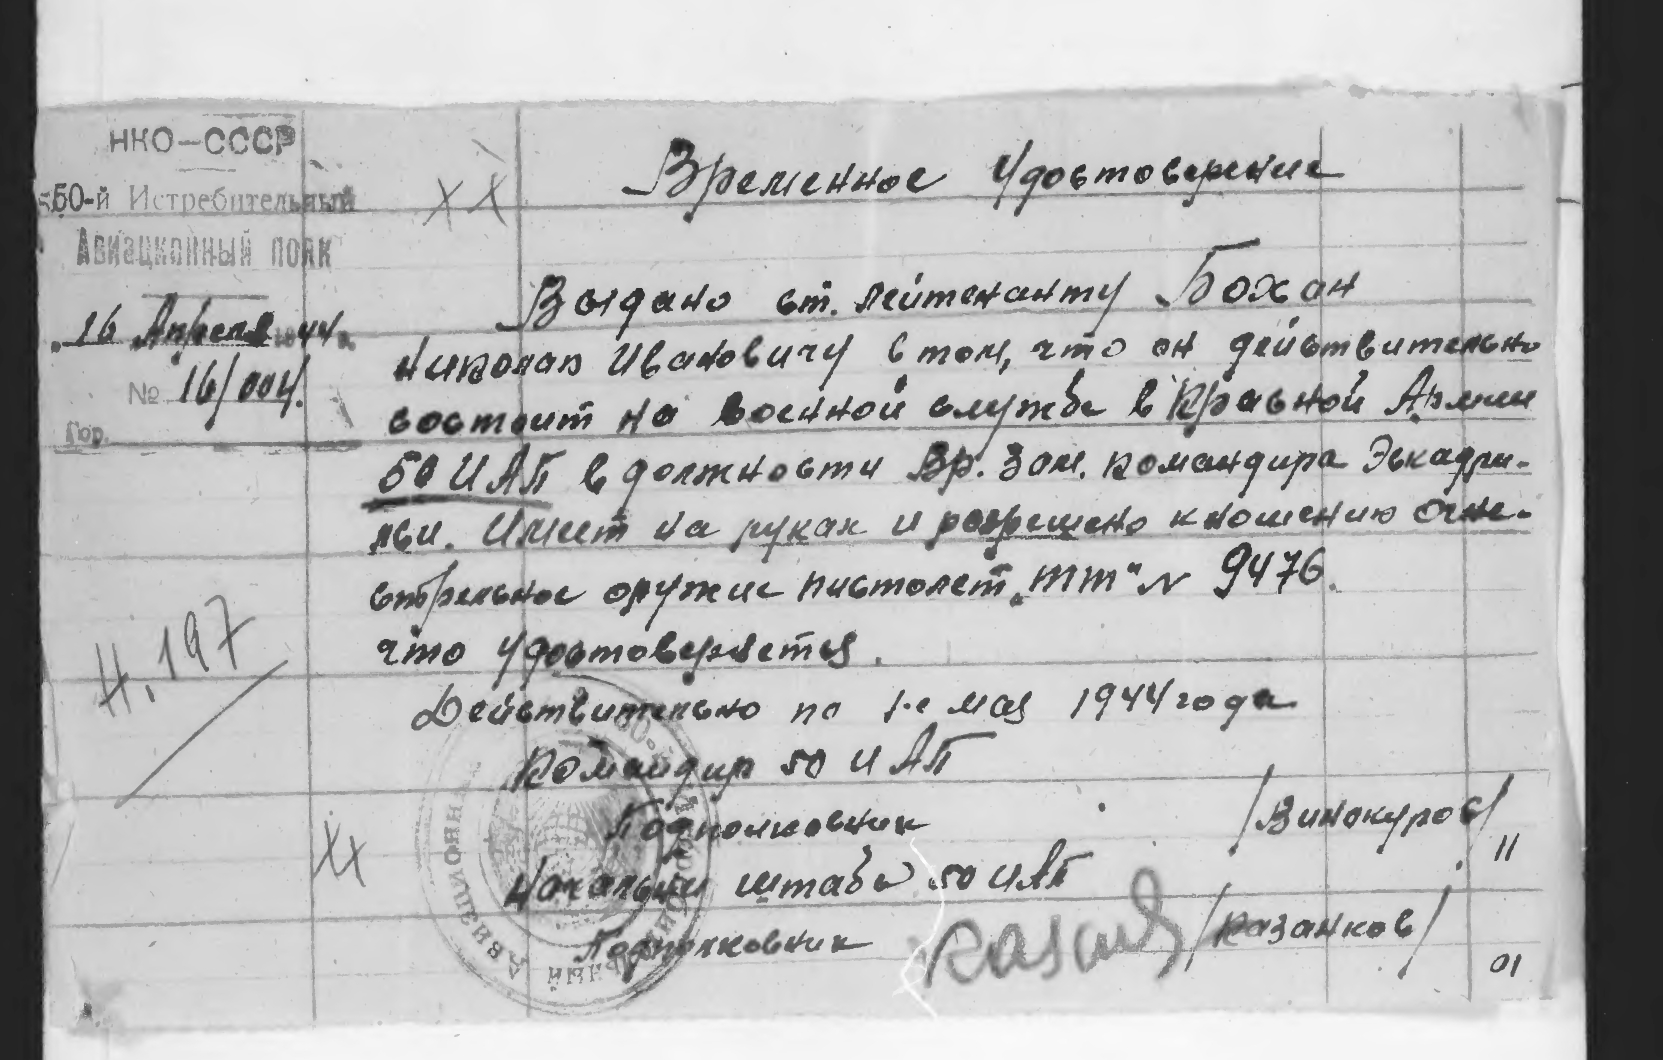 НКО-СССР
50-й Истребительный
Авиационный полк
"16 Апреля 1944 г.
№ 16/004.
Гор.
ХХ
Временное Удостоверение
Выдано ст. лейтенанту Бохан
Николаю Ивановичу в том, что он действительно
состоит на военной службе в Красной Армии
50 ИАП в должности Вр. Зам. командира Эскадри-
льи. Имеет на руках и разрешено к ношению огне-
стрельное оружие пистолет "ТТ" № 9476.
что удостоверяется.
Действительно по 1-е мая 1944 года
Н. 197
Командир 50 ИАП
Подполковник /Винокуров/
11
ХХ
Начальник штаба 50 ИАП
Подполковник /Казанков/
01